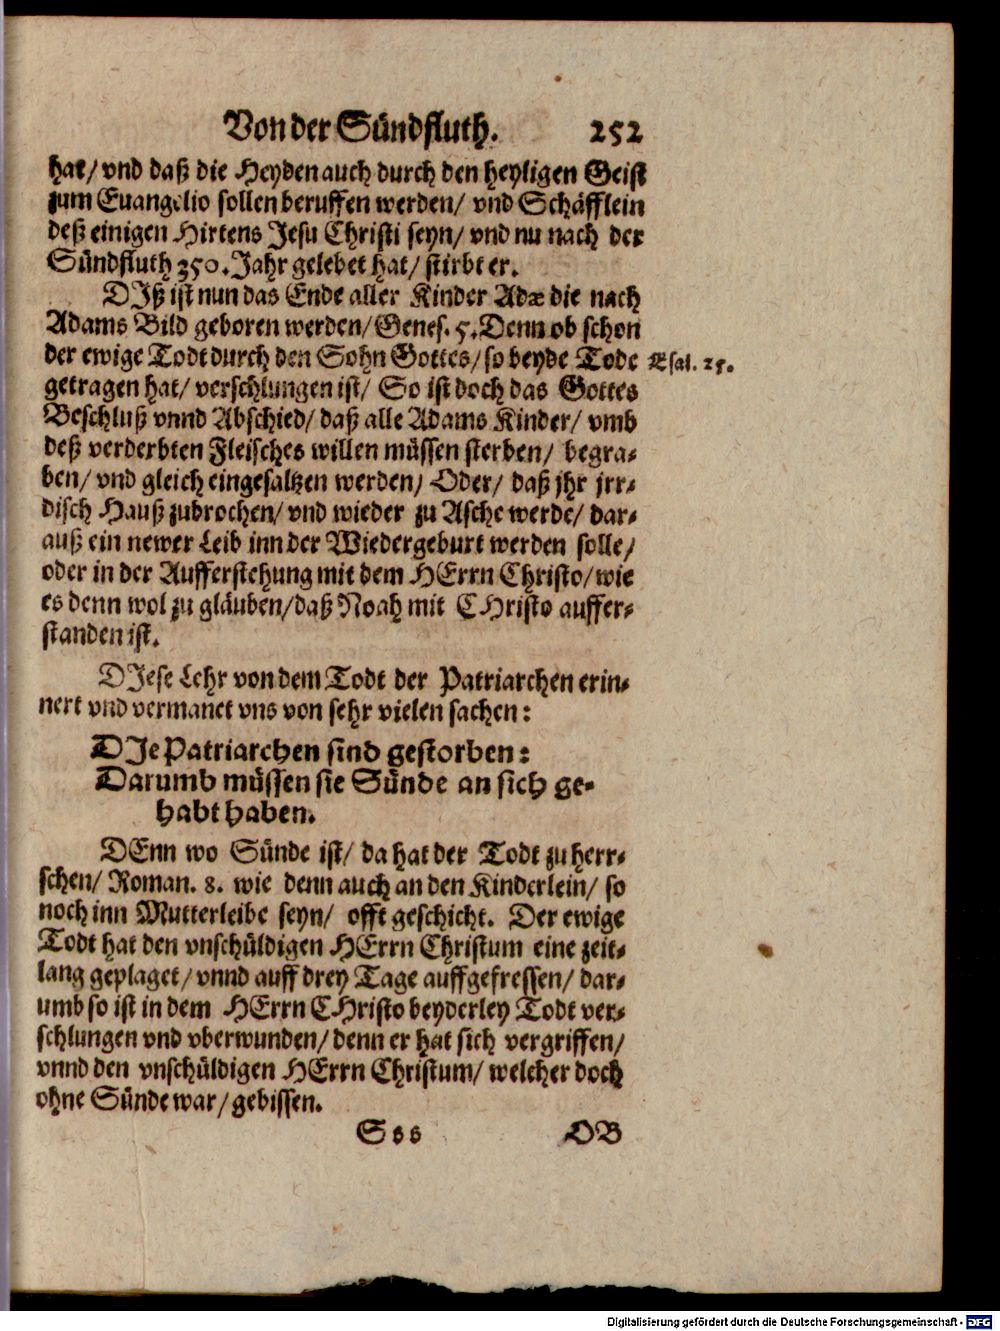 Von der Sündfluth. 252
hat/ vnd daß die Heyden auch durch den heyligen Geist
zum Euangelio sollen beruffen werden/ vnd Schäfflein
deß einigen Hirtens Jesu Christi seyn/ vnd nu nach der
Sündfluth 350. Jahr gelebet hat/ stirbt er.
DIß ist nun das Ende aller Kinder Adæ die nach
Adams Bild geboren werden/ Genes. 5. Denn ob schon
der ewige Todt durch den Sohn Gottes/ so beyde Tode Esal. 25.
getragen hat/ verschlungen ist/ So ist doch das Gottes
Beschluß vnnd Abschied/ daß alle Adams Kinder/ vmb
deß verderbten Fleisches willen müssen sterben/ begra-
ben/ vnd gleich eingesaltzen werden/ Oder/ daß jhr jrr-
disch Hauß zubrochen/ vnd wieder zu Asche werde/ dar-
auß ein newer Leib inn der Wiedergeburt werden solle/
oder in der Aufferstehung mit dem HErrn Christo/ wie
es denn wol zu gläuben/ daß Noah mit CHristo auffer-
standen ist.
DIese Lehr von dem Todt der Patriarchen erin-
nert vnd vermanet vns von sehr vielen sachen:
DIe Patriarchen sind gestorben:
Darumb müssen sie Sünde an sich ge-
habt haben.
DEnn wo Sünde ist/ da hat der Todt zu herr-
schen/ Roman. 8. wie denn auch an den Kinderlein/ so
noch inn Mutterleibe seyn/ offt geschicht. Der ewige
Todt hat den vnschüldigen HErrn Christum eine zeit-
lang geplaget/ vnnd auff drey Tage auffgefressen/ dar-
umb so ist in dem HErrn CHristo beyderley Todt ver-
schlungen vnd vberwunden/ denn er hat sich vergriffen/
vnnd den vnschüldigen HErrn Christum/ welcher doch
ohne Sünde war/ gebissen.
Sss OB
Digitalisierung gefördert durch die Deutsche Forschungsgemeinschaft - DFG